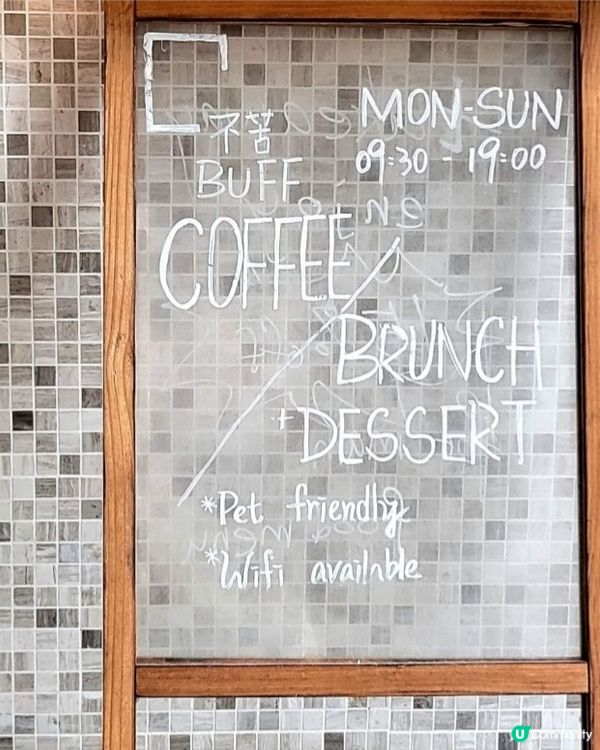 不苦
BUFF
MON-SUN
09:30 - 19:00
COFFEE
BRUNCH
+DESSERT
*Pet friendly
*Wifi available
U Community